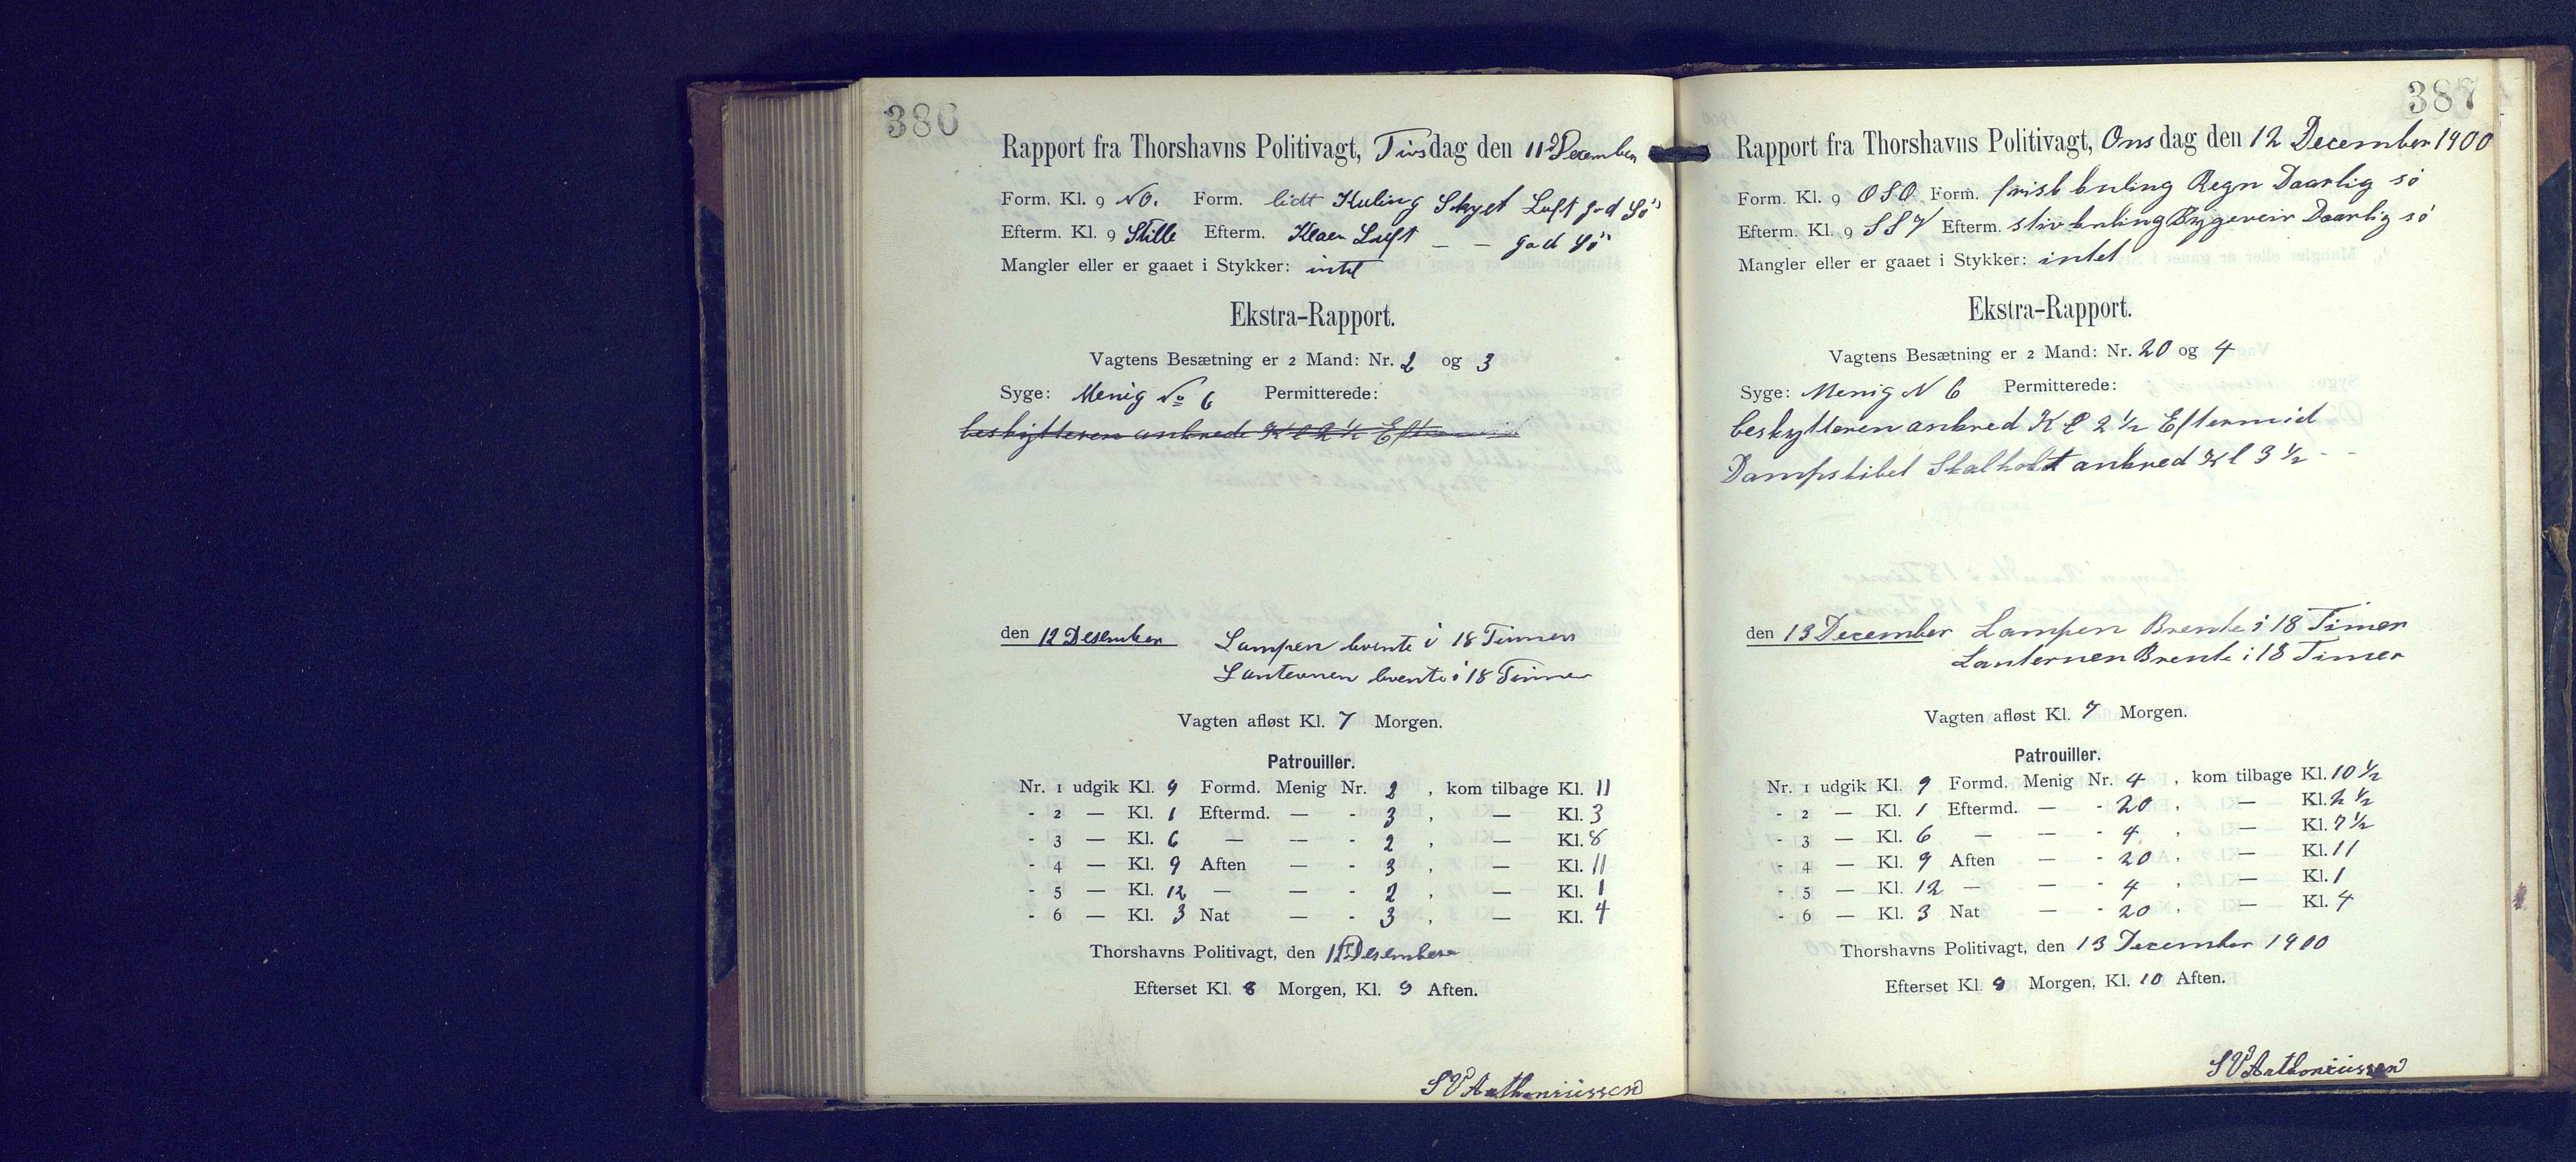 386
Rapport fra Thorshavns Politivagt, Tirsdag den 11 December
Form. Kl. 9 NO. Form. lidt Kuling Skyet Luft god Sö
Efterm. Kl. 9 Stille Efterm. Klaer Luft — — god Sö
Mangler eller er gaaet i Stykker: intet
Ekstra-Rapport.
Vagtens Besætning er 2 Mand: Nr. 2 og 3
Syge: Menig No 6 Permitterede:
beskytteren ankrede Kl 2 ½ Eftermid
den 12 Desember Lampen brente i 18 Timer
Lanternen brente i 18 Timer
Vagten afløst Kl. 7 Morgen.
Patrouiller.
Nr. 1 udgik Kl. 9 Formd. Menig Nr. 2 , kom tilbage Kl. 11
- 2 — Kl. 1 Eftermd. — - 3 , — Kl. 3
- 3 — Kl. 6 — — - 2 , — Kl. 8
- 4 — Kl. 9 Aften — - 3 , — Kl. 11
- 5 — Kl. 12 — — - 2 , — Kl. 1
- 6 — Kl. 3 Nat — - 3 , — Kl. 4
Thorshavns Politivagt, den 12 Desember
Efterset Kl. 8 Morgen, Kl. 9 Aften.
S V Anthoniussen
387
Rapport fra Thorshavns Politivagt, Onsdag den 12 December 1900
Form. Kl. 9 OSO Form. frisk kuling Regn Daarlig sö
Efterm. Kl. 9 SSV Efterm. stiv kuling Bygeveir Daarlig sö
Mangler eller er gaaet i Stykker: intet
Ekstra-Rapport.
Vagtens Besætning er 2 Mand: Nr. 20 og 4
Syge: Menig N 6 Permitterede:
beskytteren ankred Kl 2 ½ Eftermid
Dampskibet Skalholt ankred Kl 3 ½ - -
den 13 December Lampen Brente i 18 Timer
Lanternen Brente i 18 Timer
Vagten afløst Kl. 7 Morgen.
Patrouiller.
Nr. 1 udgik Kl. 9 Formd. Menig Nr. 4 , kom tilbage Kl. 10 ½
- 2 — Kl. 1 Eftermd. — - 20 , — Kl. 2 ½
- 3 — Kl. 6 — — - 4 , — Kl. 7 ½
- 4 — Kl. 9 Aften — - 20 , — Kl. 11
- 5 — Kl. 12 — — - 4 , — Kl. 1
- 6 — Kl. 3 Nat — - 20 , — Kl. 4
Thorshavns Politivagt, den 13 December 1900
Efterset Kl. 9 Morgen, Kl. 10 Aften.
S V Anthoniussen